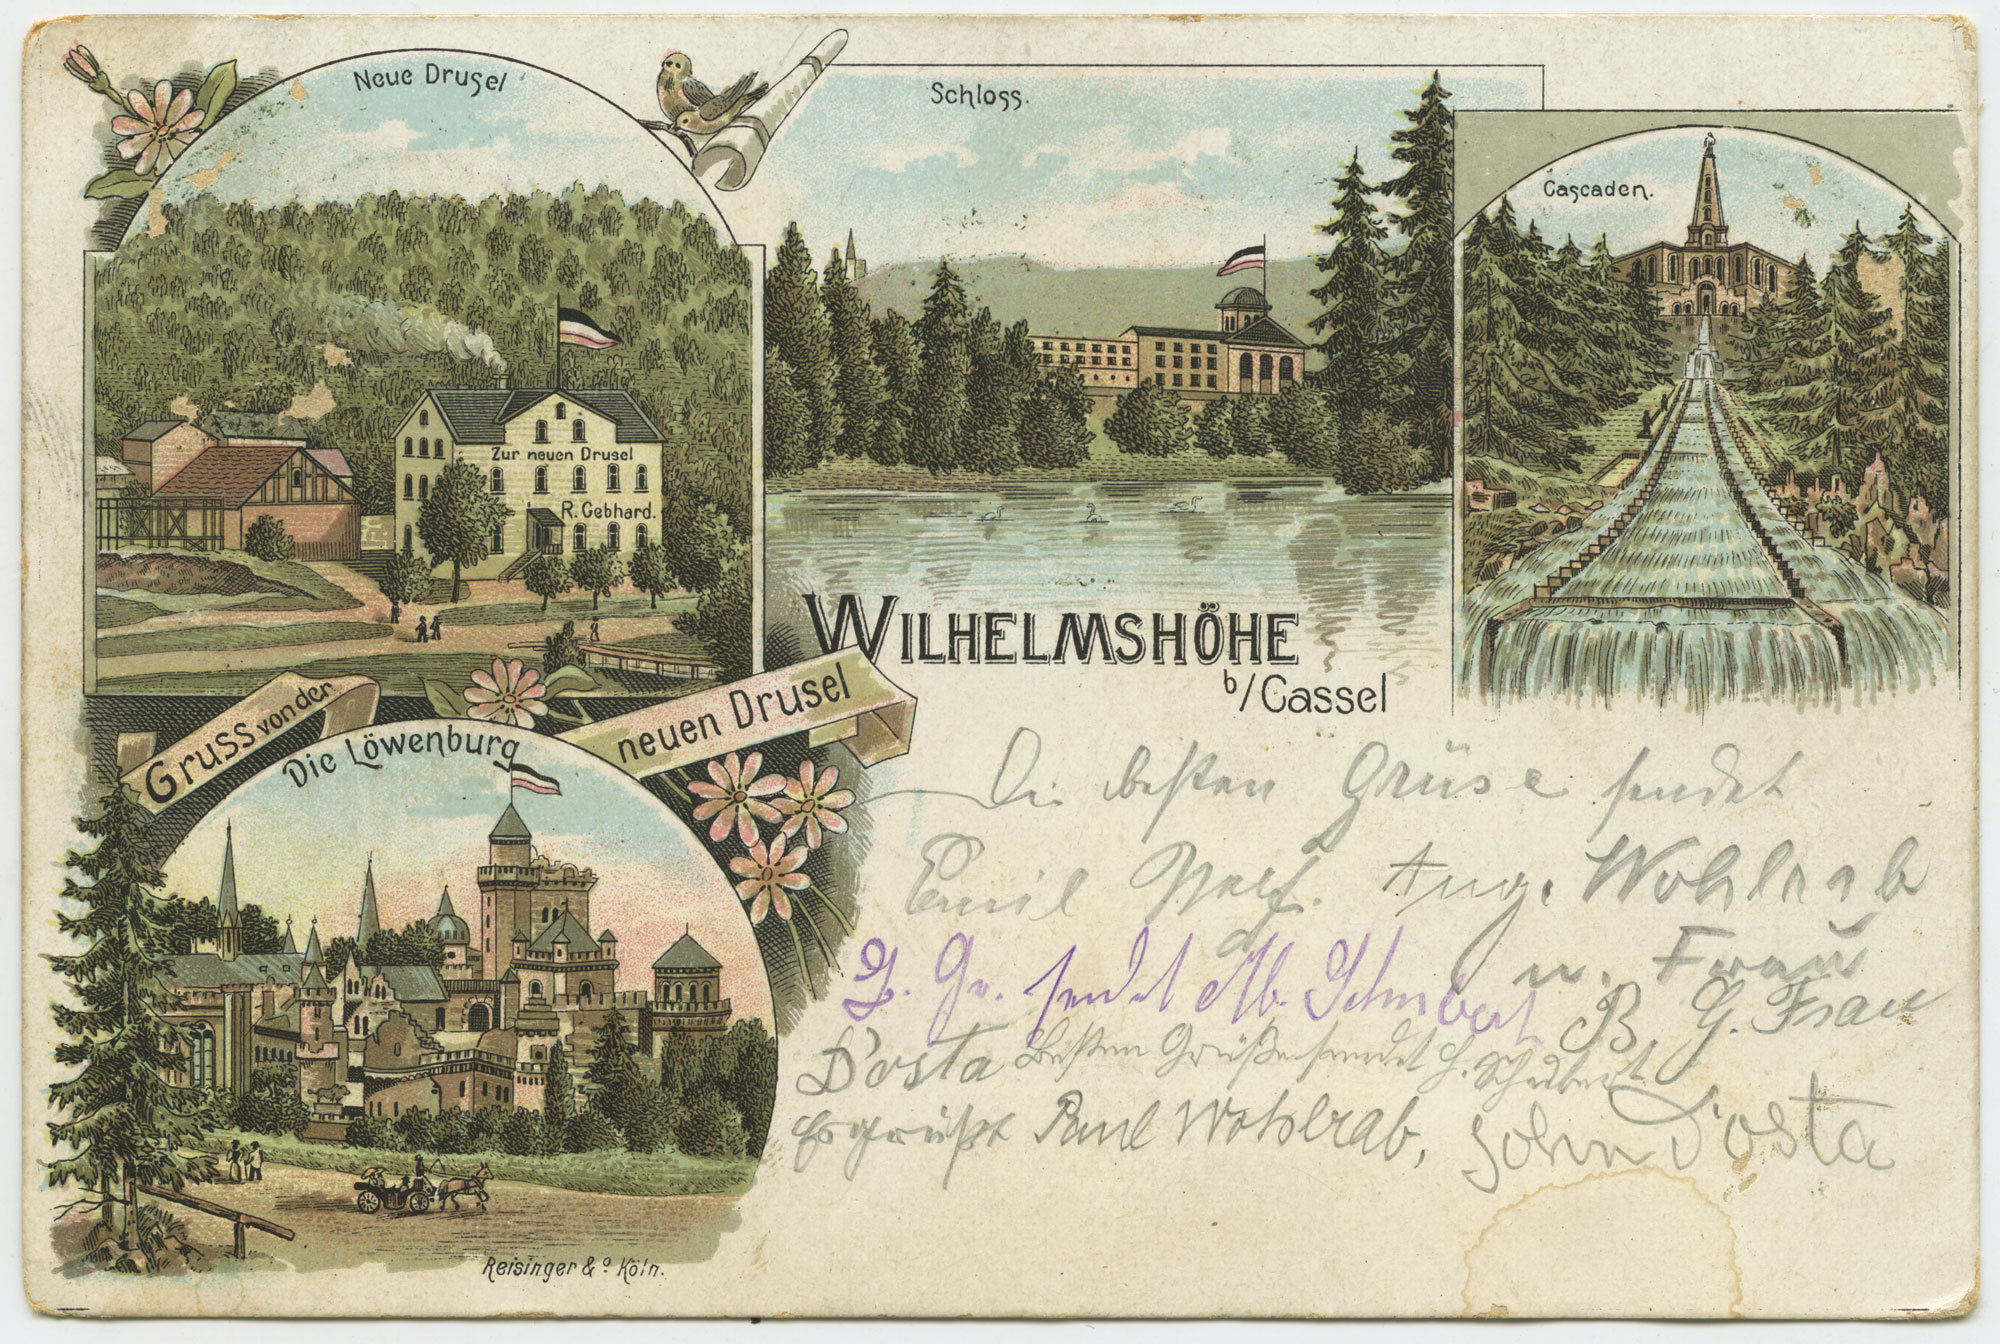 Neue Drusel
Schloss.
Cascaden.
Zur neuen Drusel
R. Gebhard.
WILHELMSHÖHE
b/Cassel
Gruss von der
neuen Drusel
Die Löwenburg
Die besten Grüse sendet
Emil Aug. Wohlrab
u. Frau
sendet Schubert G. Frau
Dosta Besten Grüße sendet H. Schubert
Es grüßt Paul Wohlrab, John Dosta
Reisinger & Co Köln.